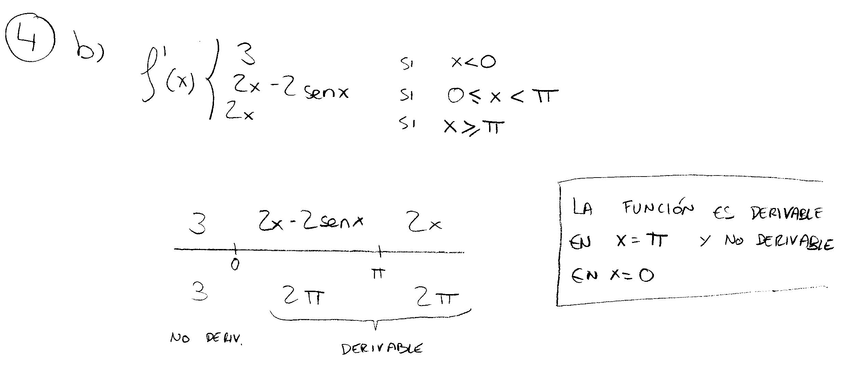 4 b) f'(x) { 3 si x<0
2x-2senx si 0≤x<π
2x si x≥π
3 2x-2senx 2x
0 π
3 2π 2π
NO DERIV. DERIVABLE
LA FUNCIÓN ES DERIVABLE
EN x=π Y NO DERIVABLE
EN x=0